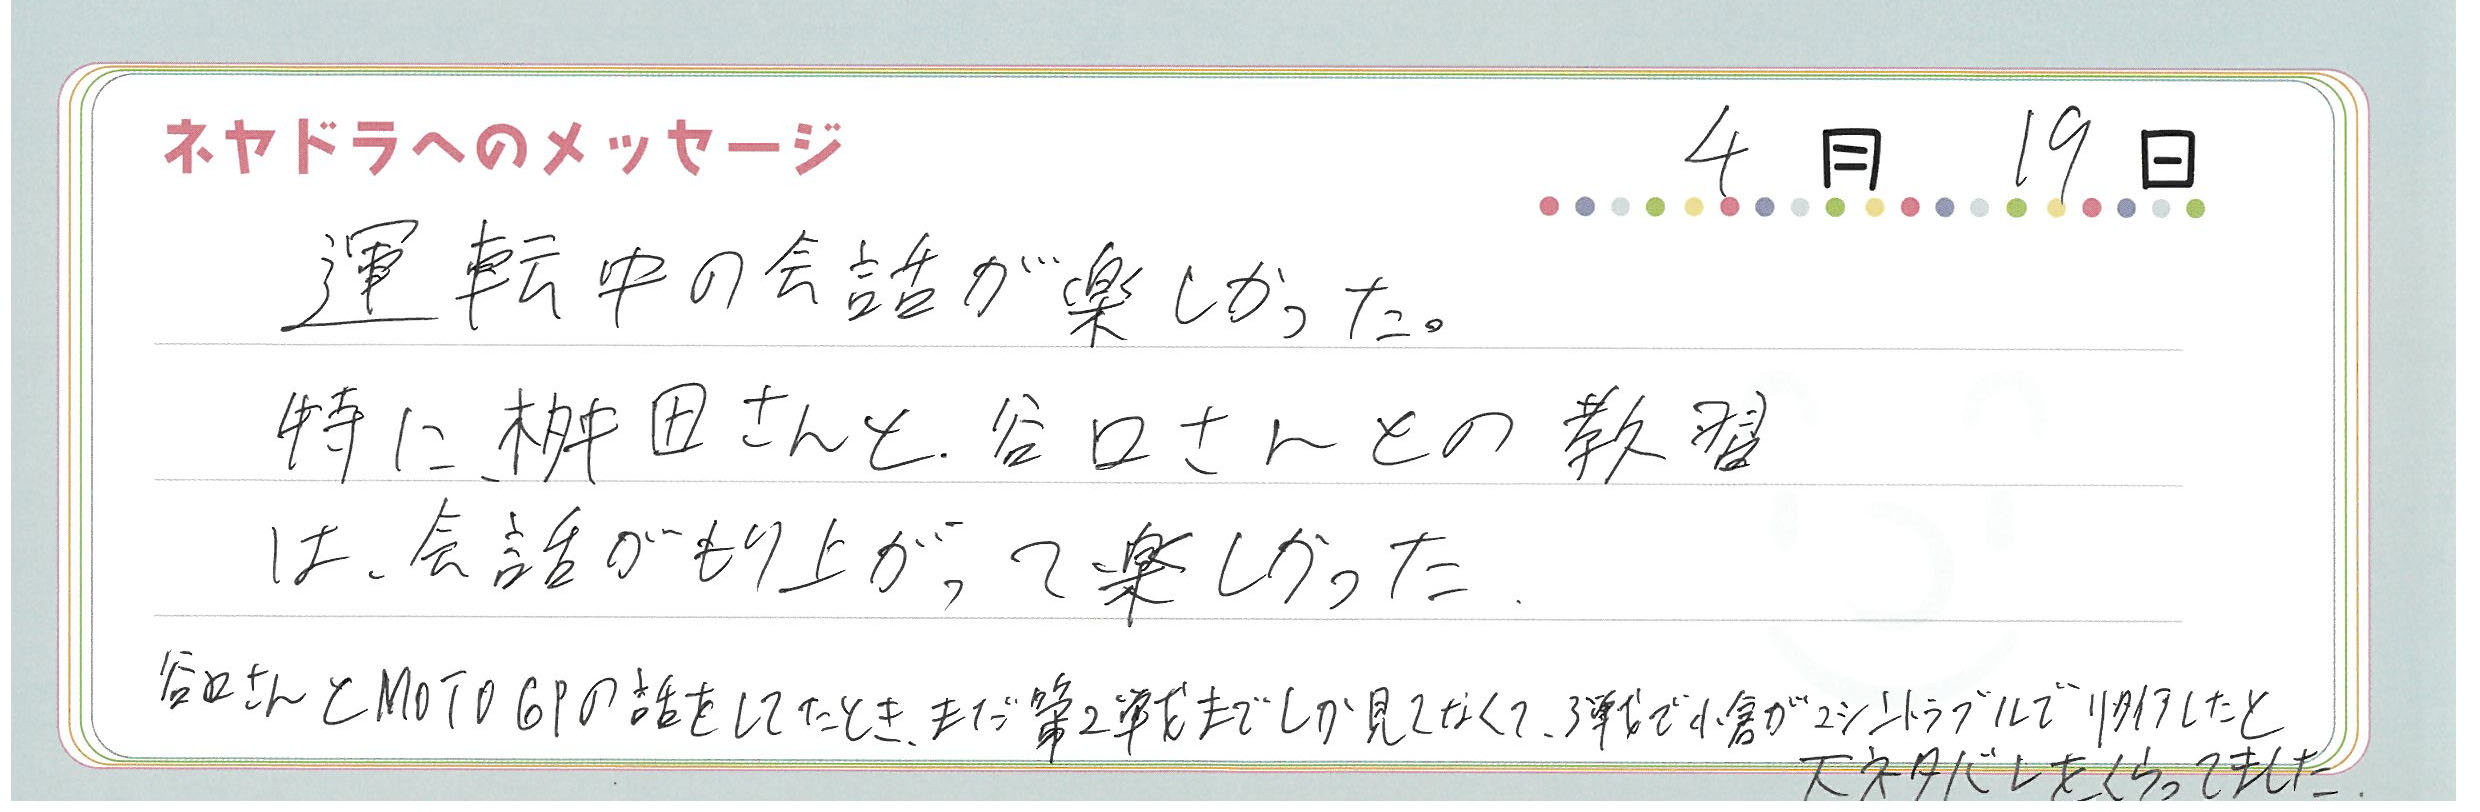 ネヤドラへのメッセージ
4月 19日
運転中の会話が楽しかった。
特に、桝田さんと、谷口さんとの教習
は、会話がもり上がって楽しかった.
谷口さんとMOTO GPの話をしてたとき、まだ第2戦までしか見てなくて、3戦で小倉がマシントラブルでリタイアしたと
大ネタバレをくらってました.